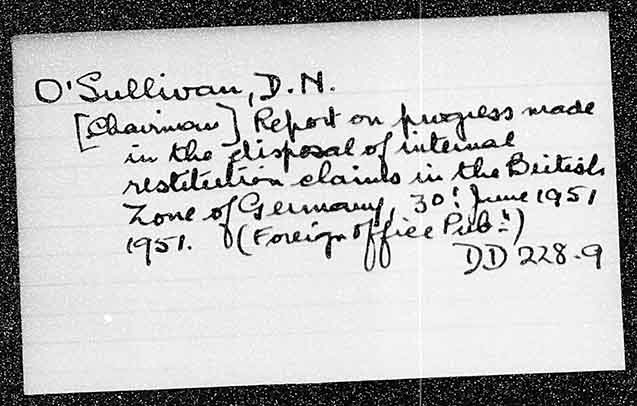 O'Sullivan, D.N.
[Chairman] Report on progress made
in the disposal of internal
restitution claims in the British
Zone of Germany, 30! June 1951
1951. (Foreign Office Pub:ⁿ)
DD 228.9